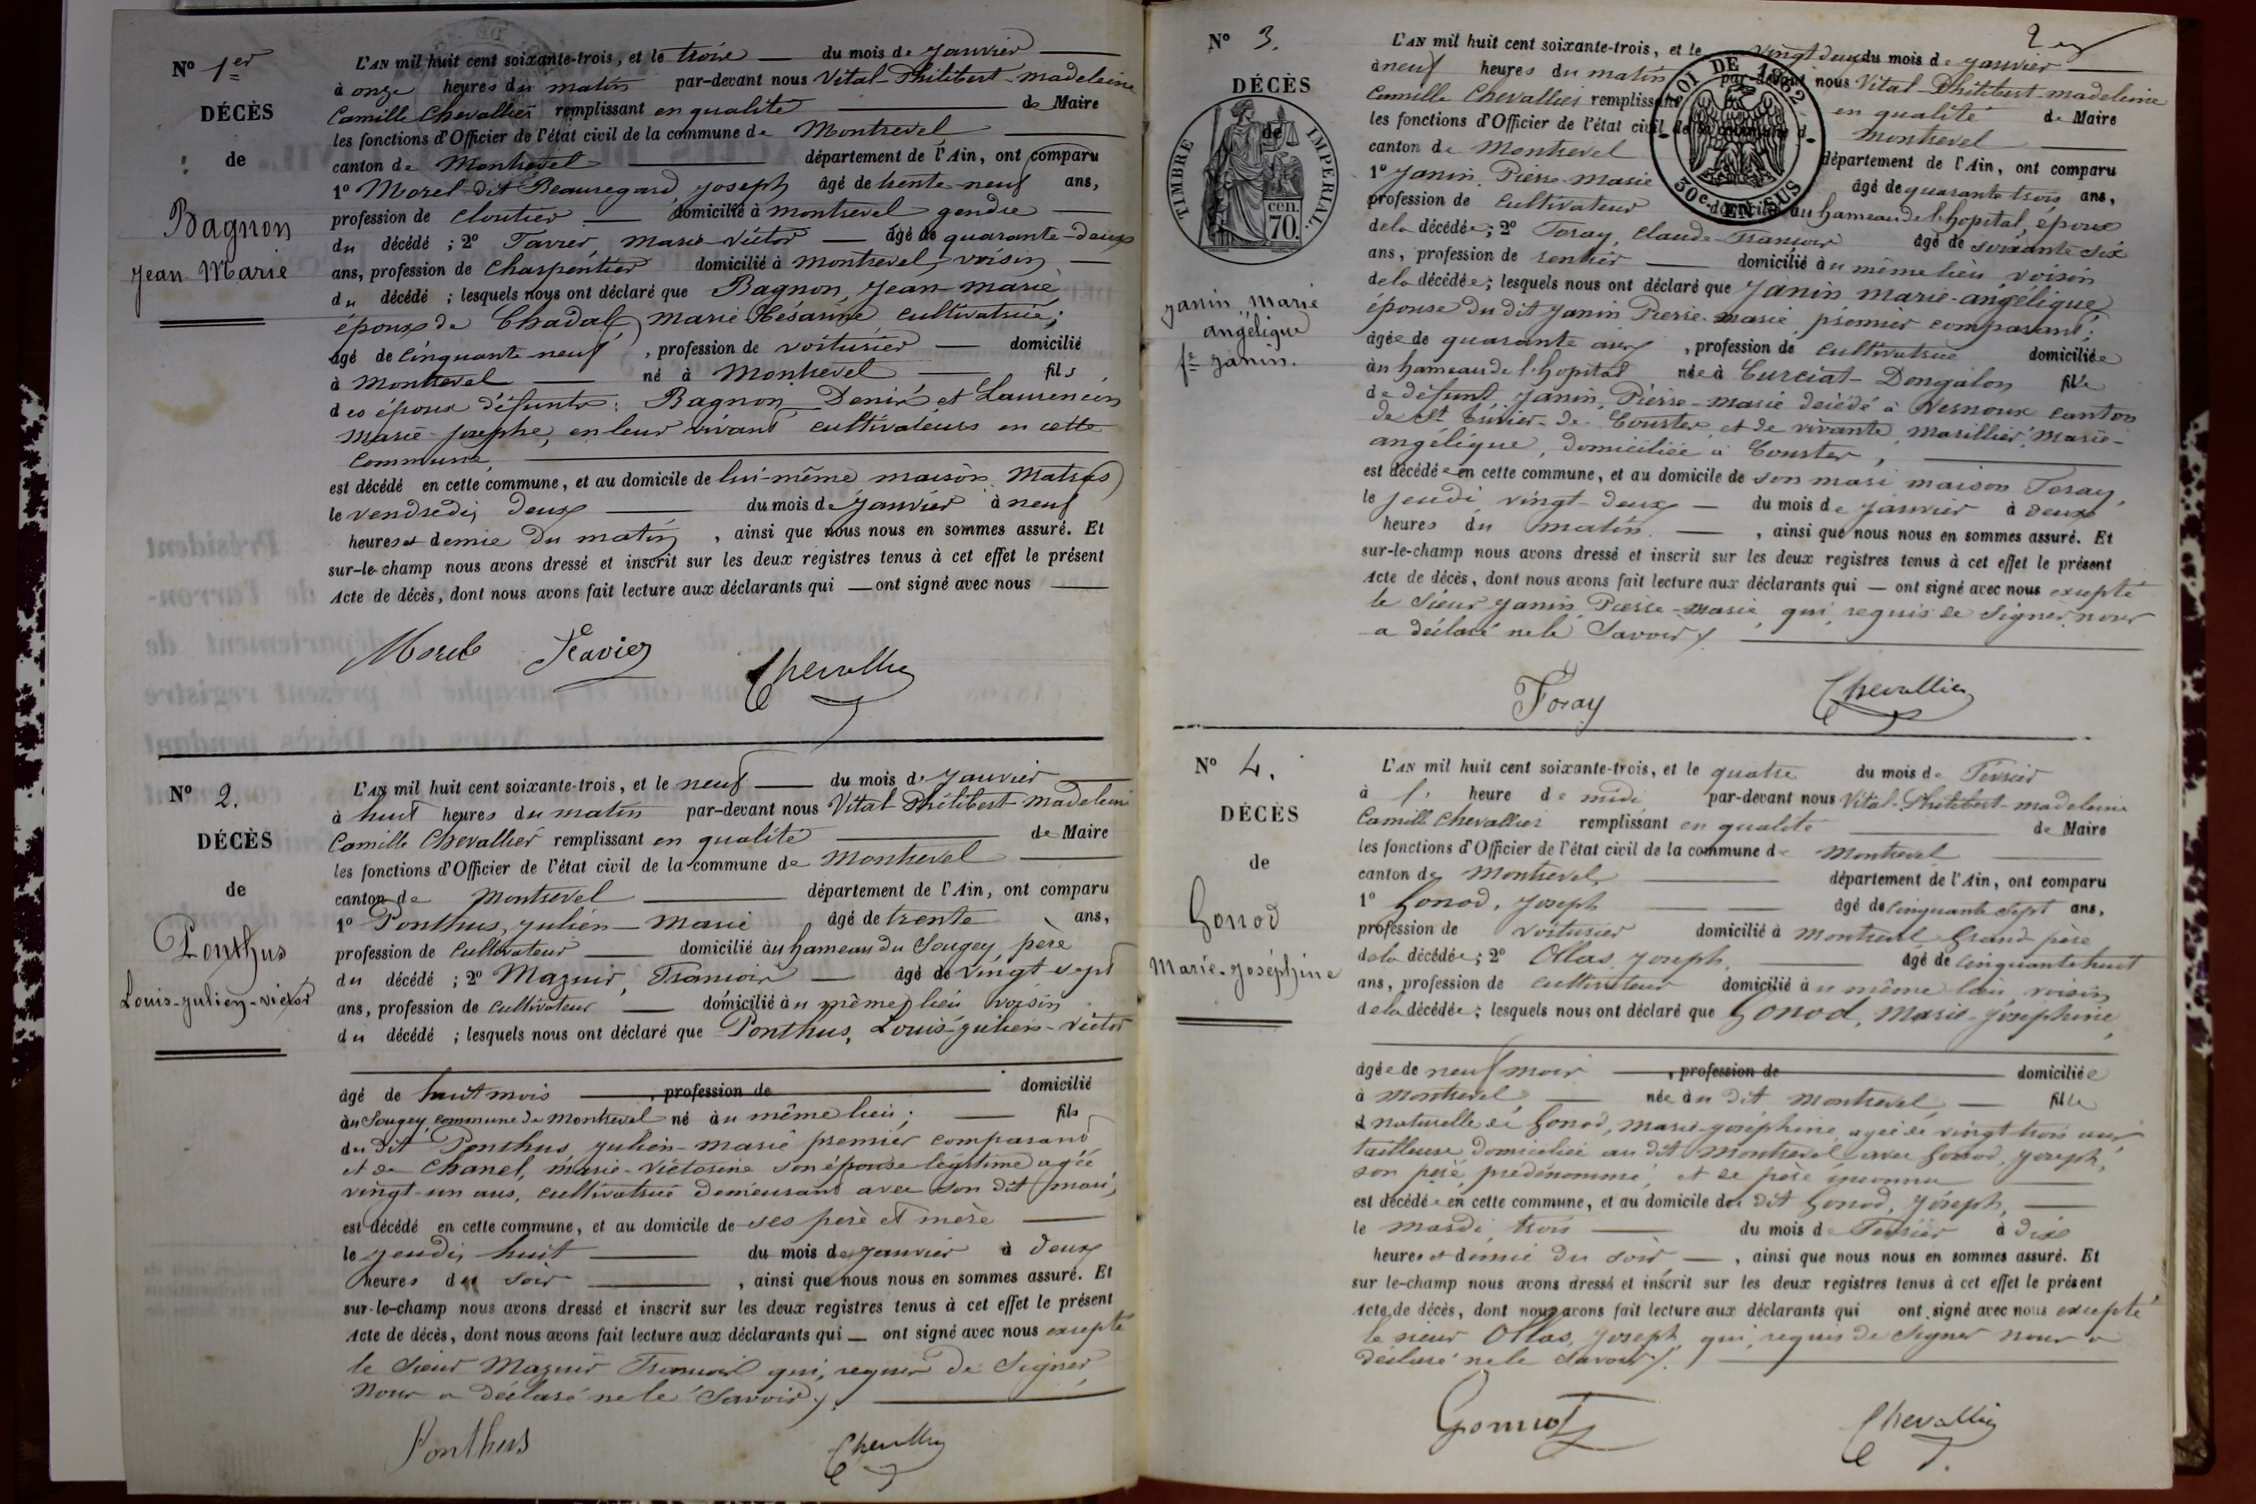 Nº 1er
DÉCÈS
de
Bagnon
Jean Marie
L'AN mil huit cent soixante-trois, et le trois du mois de Janvier
à onze heures du matin par-devant nous Vital-Philibert-madeleine
Camille Chevallier remplissant en qualité de Maire
les fonctions d'Officier de l'état civil de la commune de Montrevel
canton de Montrevel département de l'Ain, ont comparu
1º Morel dit Beauregard, Joseph âgé de trente-neuf ans,
profession de cloutier domicilié à montrevel gendre
du décédé ; 2º Favier, Marie-Victor âgé de quarante-deux
ans, profession de Charpentier domicilié à montrevel, voisin
du décédé ; lesquels nous ont déclaré que Bagnon, Jean-marie
époux de Chadal, Marie Césarine, cultivatrice ;
âgé de cinquante-neuf , profession de voiturier domicilié
à Montrevel né à Montrevel fils
des époux défunts : Bagnon Denis et Laurencin
Marie-Josephe, en leur vivant cultivateurs en cette
commune,
est décédé en cette commune, et au domicile de lui-même maison Matras
le vendredi, deux du mois de Janvier à neuf
heures et demie du matin , ainsi que nous nous en sommes assuré. Et
sur-le-champ nous avons dressé et inscrit sur les deux registres tenus à cet effet le présent
Acte de décès, dont nous avons fait lecture aux déclarants qui — ont signé avec nous
Morel Favier Chevallier
Nº 2.
DÉCÈS
de
Ponthus
Louis-Julien-victor
L'AN mil huit cent soixante-trois, et le neuf du mois de Janvier
à huit heures du matin par-devant nous Vital Philibert-madeleine
Camille Chevallier remplissant en qualité de Maire
les fonctions d'Officier de l'état civil de la commune de Montrevel
canton de Montrevel département de l'Ain, ont comparu
1º Ponthus, Julien-Marie âgé de trente ans,
profession de Cultivateur domicilié au hameau du Sougey père
du décédé ; 2º Mazuir, François âgé de vingt sept
ans, profession de cultivateur domicilié au même lieu voisin
du décédé ; lesquels nous ont déclaré que Ponthus, Louis-Julien-Victor
âgé de huit mois , profession de domicilié
au Sougey, commune de Montrevel né au même lieu ; fils
du dit Ponthus, Julien-marie premier comparant
et de Chanel, marie-Victorine son épouse légitime agée
vingt-un ans, cultivatrice demeurant avec son dit mari,
est décédé en cette commune, et au domicile de ses père et mère
le jeudi, huit du mois de Janvier à deux
heures du soir , ainsi que nous nous en sommes assuré. Et
sur-le-champ nous avons dressé et inscrit sur les deux registres tenus à cet effet le présent
Acte de décès, dont nous avons fait lecture aux déclarants qui — ont signé avec nous excepté
le Sieur Mazuir François qui, requis de Signer
nous a déclaré ne le Savoir.
Ponthus Chevallier
2
Nº 3.
DÉCÈS
de
TIMBRE IMPÉRIAL.
70 cen.
Janin, Marie
angélique
fe Janin.
LOI DE 1862
30c. EN SUS
L'AN mil huit cent soixante-trois, et le vingt deux du mois de Janvier
à neuf heures du matin par-devant nous Vital-Philibert-madeleine
Camille Chevallier remplissant en qualité de Maire
les fonctions d'Officier de l'état civil de la commune de Montrevel
canton de Montrevel département de l'Ain, ont comparu
1º Janin, Pierre-Marie âgé de quarante trois ans,
profession de Cultivateur domicilié au hameau de l'hopital, époux
de la décédée ; 2º Foray, Claude-François âgé de soixante six
ans, profession de rentier domicilié au même lieu, voisin
de la décédée ; lesquels nous ont déclaré que Janin Marie-angélique
épouse du dit Janin Pierre-marie, premier comparant ;
âgée de quarante ans , profession de Cultivatrice domiciliée
au hameau de l'hopital née à Curciat-Dongalon fille
de défunt Janin, Pierre-Marie décédé à Vernoux canton
de St Trivier-de-Courtes et de vivante, Marillier, Marie-
angélique, domiciliée à Courtes,
est décédée en cette commune, et au domicile de son mari maison Foray,
le jeudi vingt-deux du mois de Janvier à deux
heures du matin , ainsi que nous nous en sommes assuré. Et
sur-le-champ nous avons dressé et inscrit sur les deux registres tenus à cet effet le présent
Acte de décès, dont nous avons fait lecture aux déclarants qui — ont signé avec nous excepté
le Sieur Janin, Pierre-marie, qui, requis de Signer, nous
a déclaré ne le Savoir.
Foray Chevallier
Nº 4.
DÉCÈS
de
Gonod
Marie-Joséphine
L'AN mil huit cent soixante-trois, et le quatre du mois de Février
à 1 heure de midi par-devant nous Vital-Philibert-madeleine
Camille Chevallier remplissant en qualité de Maire
les fonctions d'Officier de l'état civil de la commune de Montrevel
canton de Montrevel département de l'Ain, ont comparu
1º Gonod, Joseph âgé de cinquante sept ans,
profession de voiturier domicilié à Montrevel Grand père
de la décédée ; 2º Ollas Joseph, âgé de cinquante huit
ans, profession de cultivateur domicilié au même lieu, voisin
de la décédée ; lesquels nous ont déclaré que Gonod, Marie-Joséphine,
âgée de neuf mois , profession de domiciliée
à Montrevel née au dit Montrevel, fille
naturelle de Gonod, Marie-Joséphine, agée de vingt trois ans
tailleuse, domiciliée au dit Montrevel avec Gonod, Joseph,
son père, prédénommé, et de père inconnu
est décédée en cette commune, et au domicile du dit Gonod, Joseph,
le mardi, trois du mois de Février à dix
heures et demie du soir , ainsi que nous nous en sommes assuré. Et
sur le-champ nous avons dressé et inscrit sur les deux registres tenus à cet effet le présent
Acte de décès, dont nous avons fait lecture aux déclarants qui ont signé avec nous excepté
le sieur Ollas, Joseph, qui, requis de Signer nous a
déclaré ne le Savoir.
Chevallier